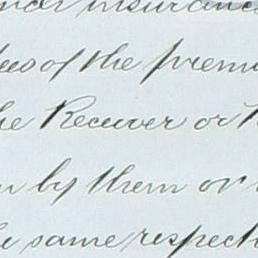 insurance
of the
the Receiver or
by them or
same respect